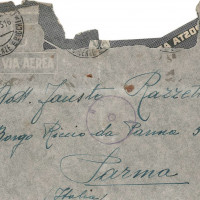 VIA AEREA
Dott. Fausto Razzet
Borgo Riccio da Parma 3
Parma
Italia